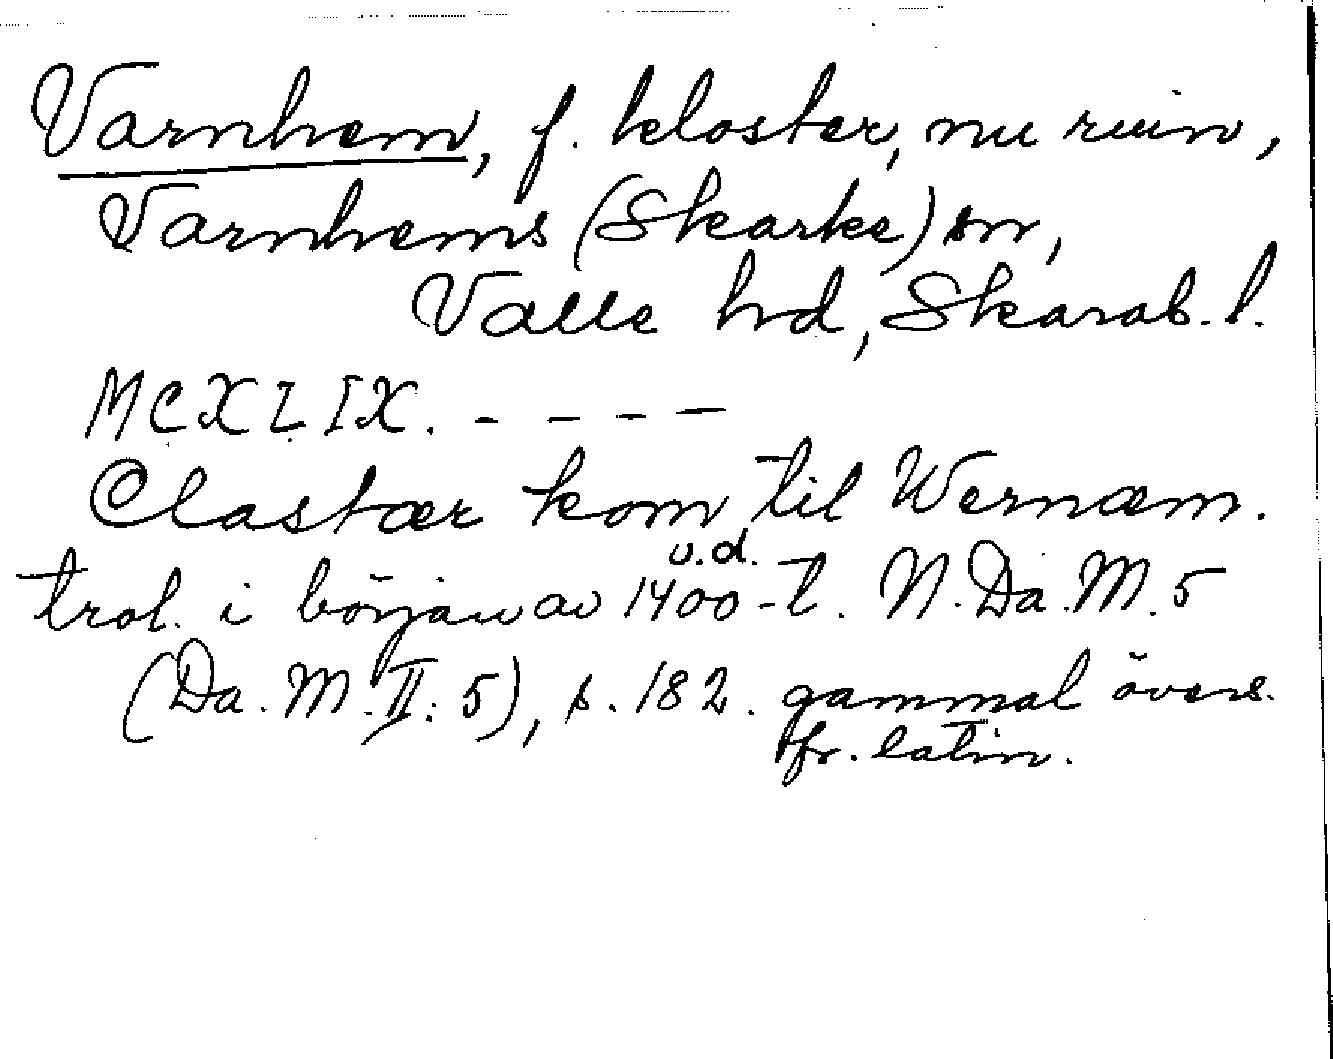 Varnhem, f. kloster, nu ruin,
Varnhems (Skarke) sn,
Valle hd, Skarab. l.
MCXLIX. - - - -
Clastær kom til Wernæm.
u.d.
trol. i början av 1400-t. N. Da. M. 5
(Da. M. II: 5), s. 182. gammal övers.
fr. latin.